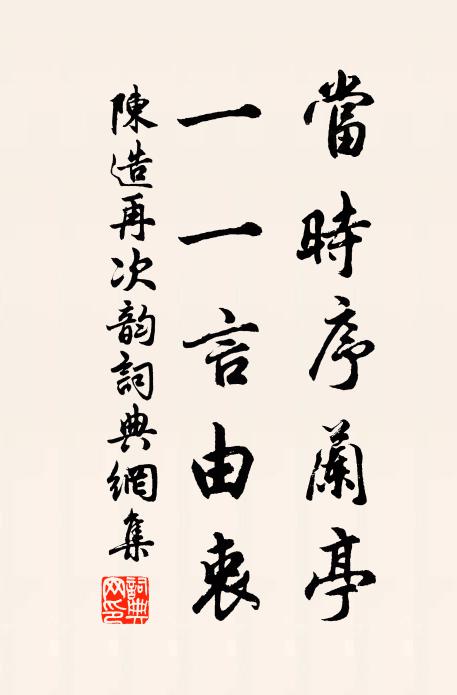 當時序蘭亭
一一言由衷
陳造再次韵詞典網集
詞典網印